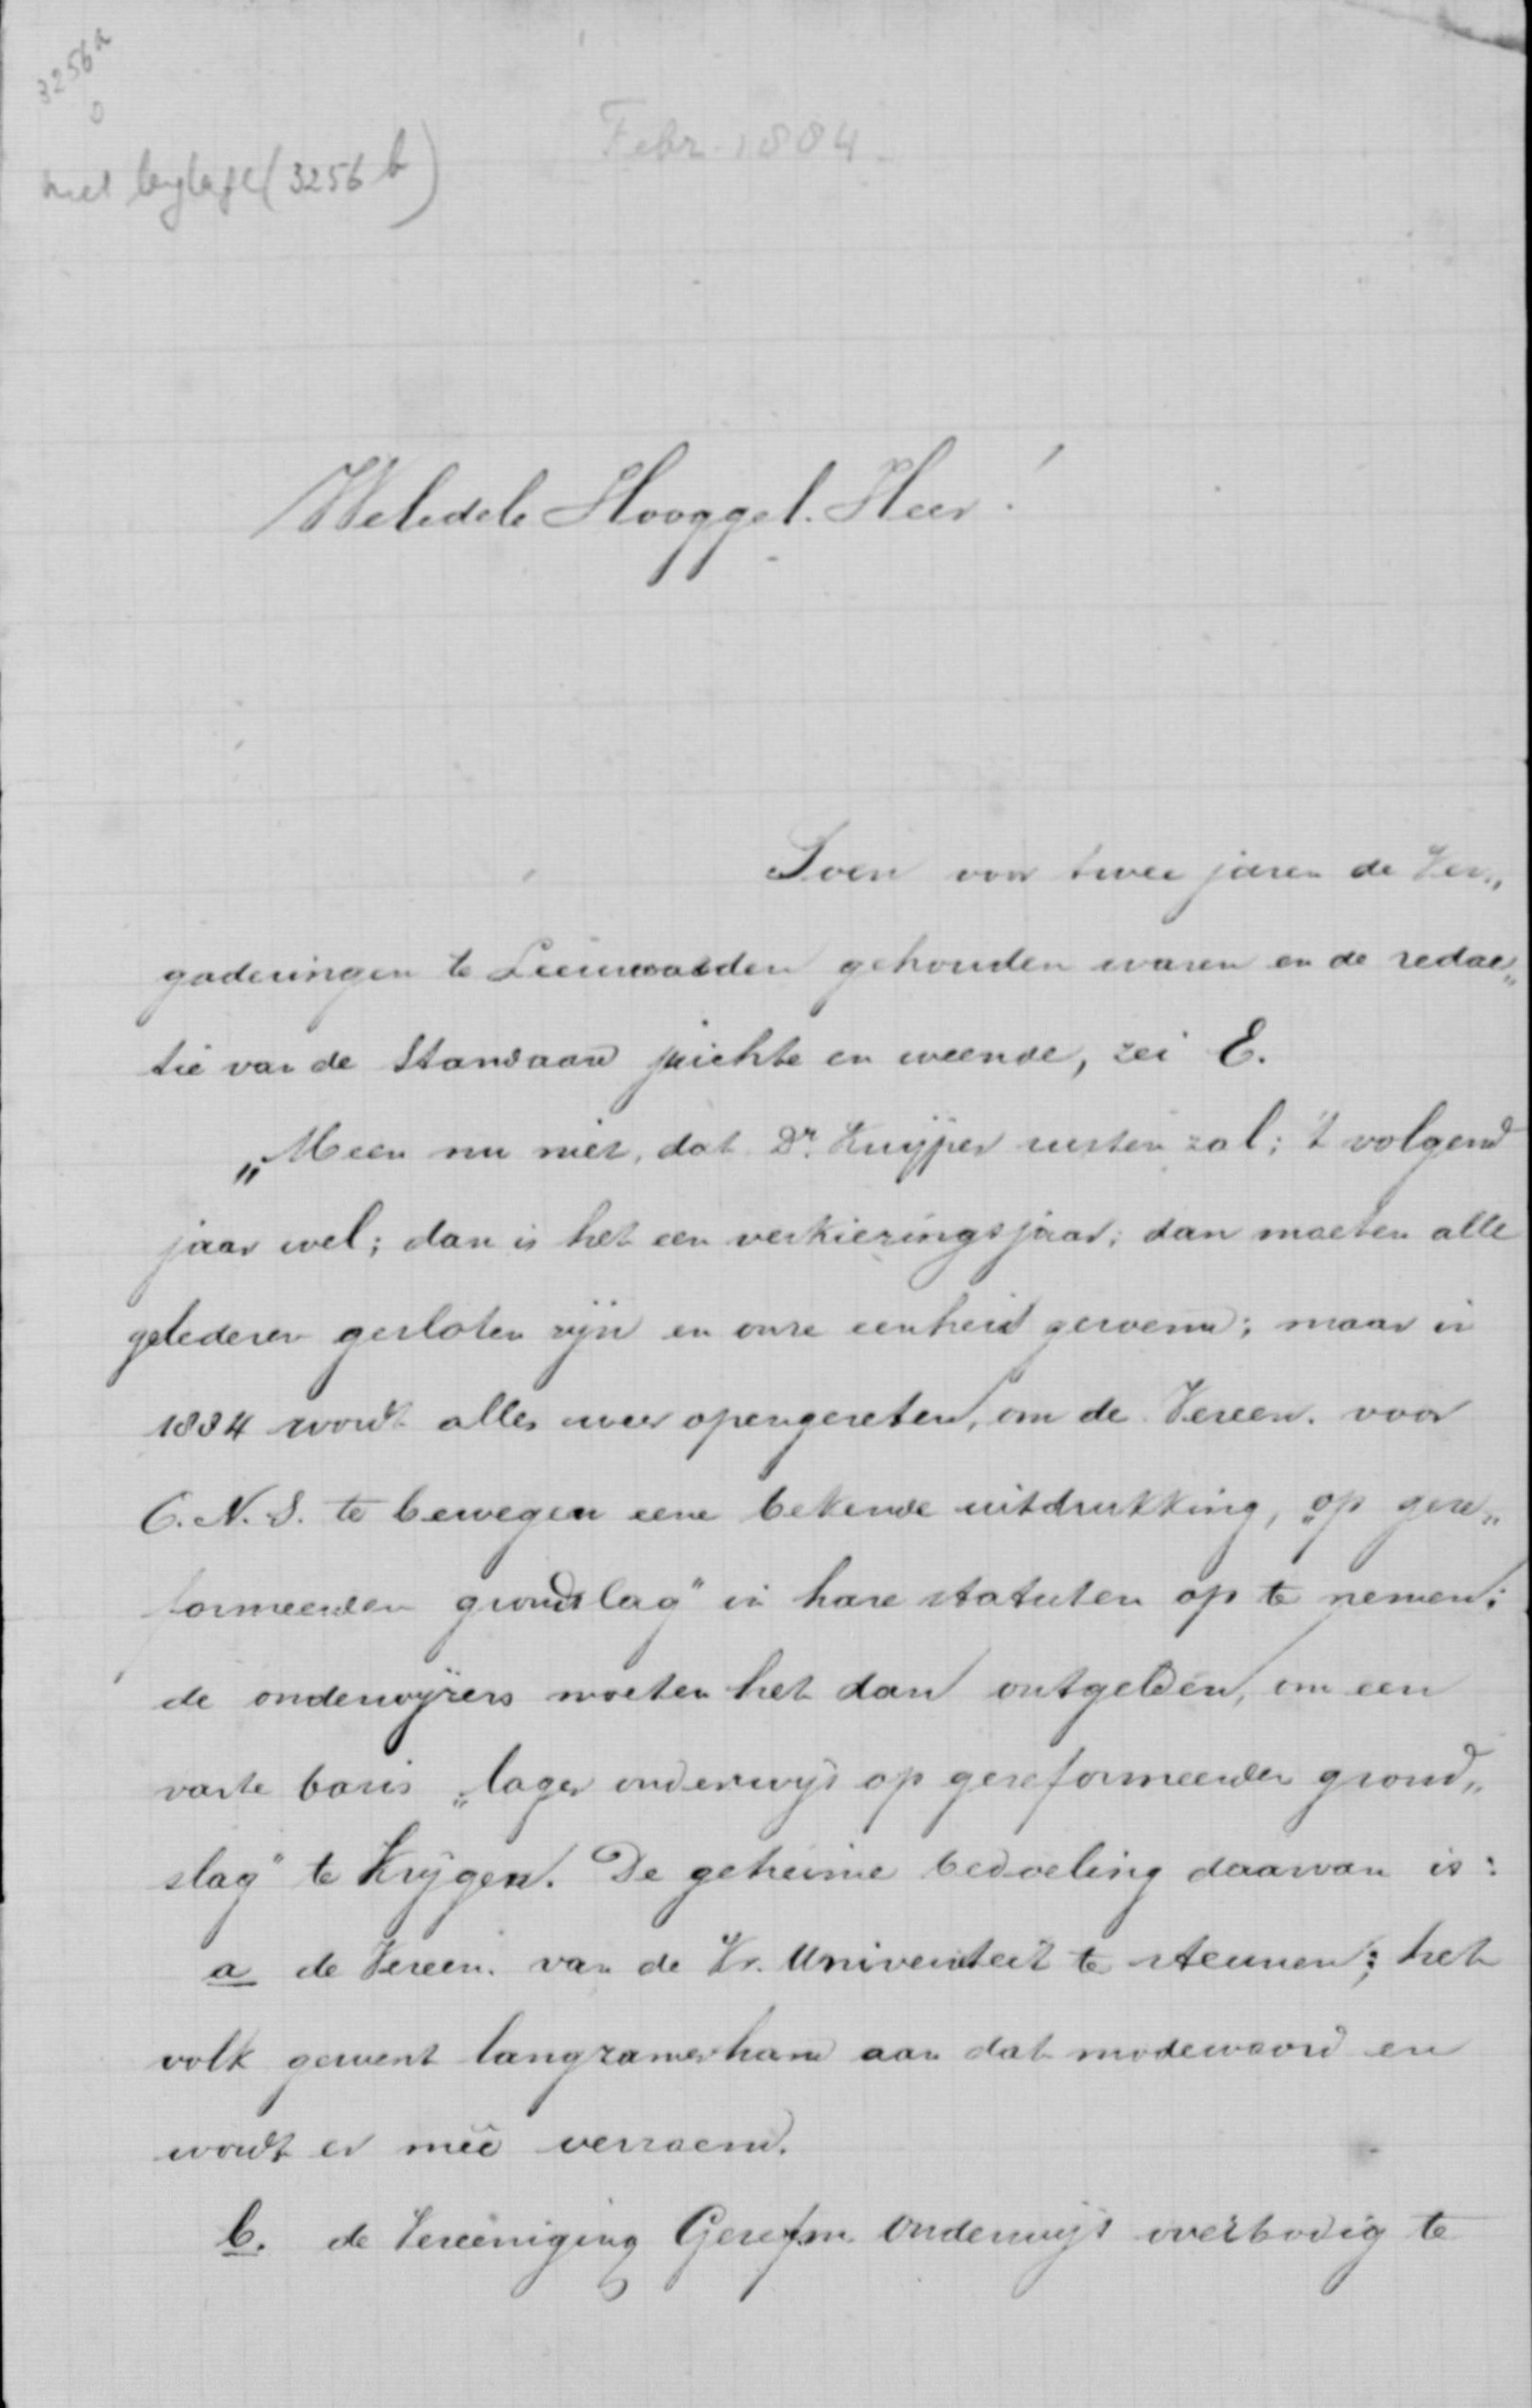 3256a
Febr. 1884.
met bylage (3256 b)
Weledele Hooggel. Heer!
Toen voor twee jaren de Ver„
gaderingen te Leeuwarden gehouden waren en de redac„
tie van de Standaard juichte en weende, zei E.
„Meen nu niet, dat Dr. Kuyper rusten zal; 't volgend
jaar wel; dan is het een verkiezingsjaar; dan moeten alle
gelederen gesloten zijn en onze eenheid geroemd; maar in
1884 wordt alles weer opengereten, om de Vereen. voor
C. N. S. te bewegen eene bekende uitdrukking, „op gere„
formeerden grondslag" in hare statuten op te nemen;
de onderwijzers moeten het dan ontgelden, om een
vaste basis „lager onderwijs op gereformeerden grond„
slag" te krijgen. De geheime bedoeling daarvan is:
a de Vereen. van de Vr. Universiteit te steunen; het
volk gewent langzamerhand aan dat modewoord en
wordt er meê verzoend.
b. de Vereeniging Gerefm. Onderwijs overbodig te